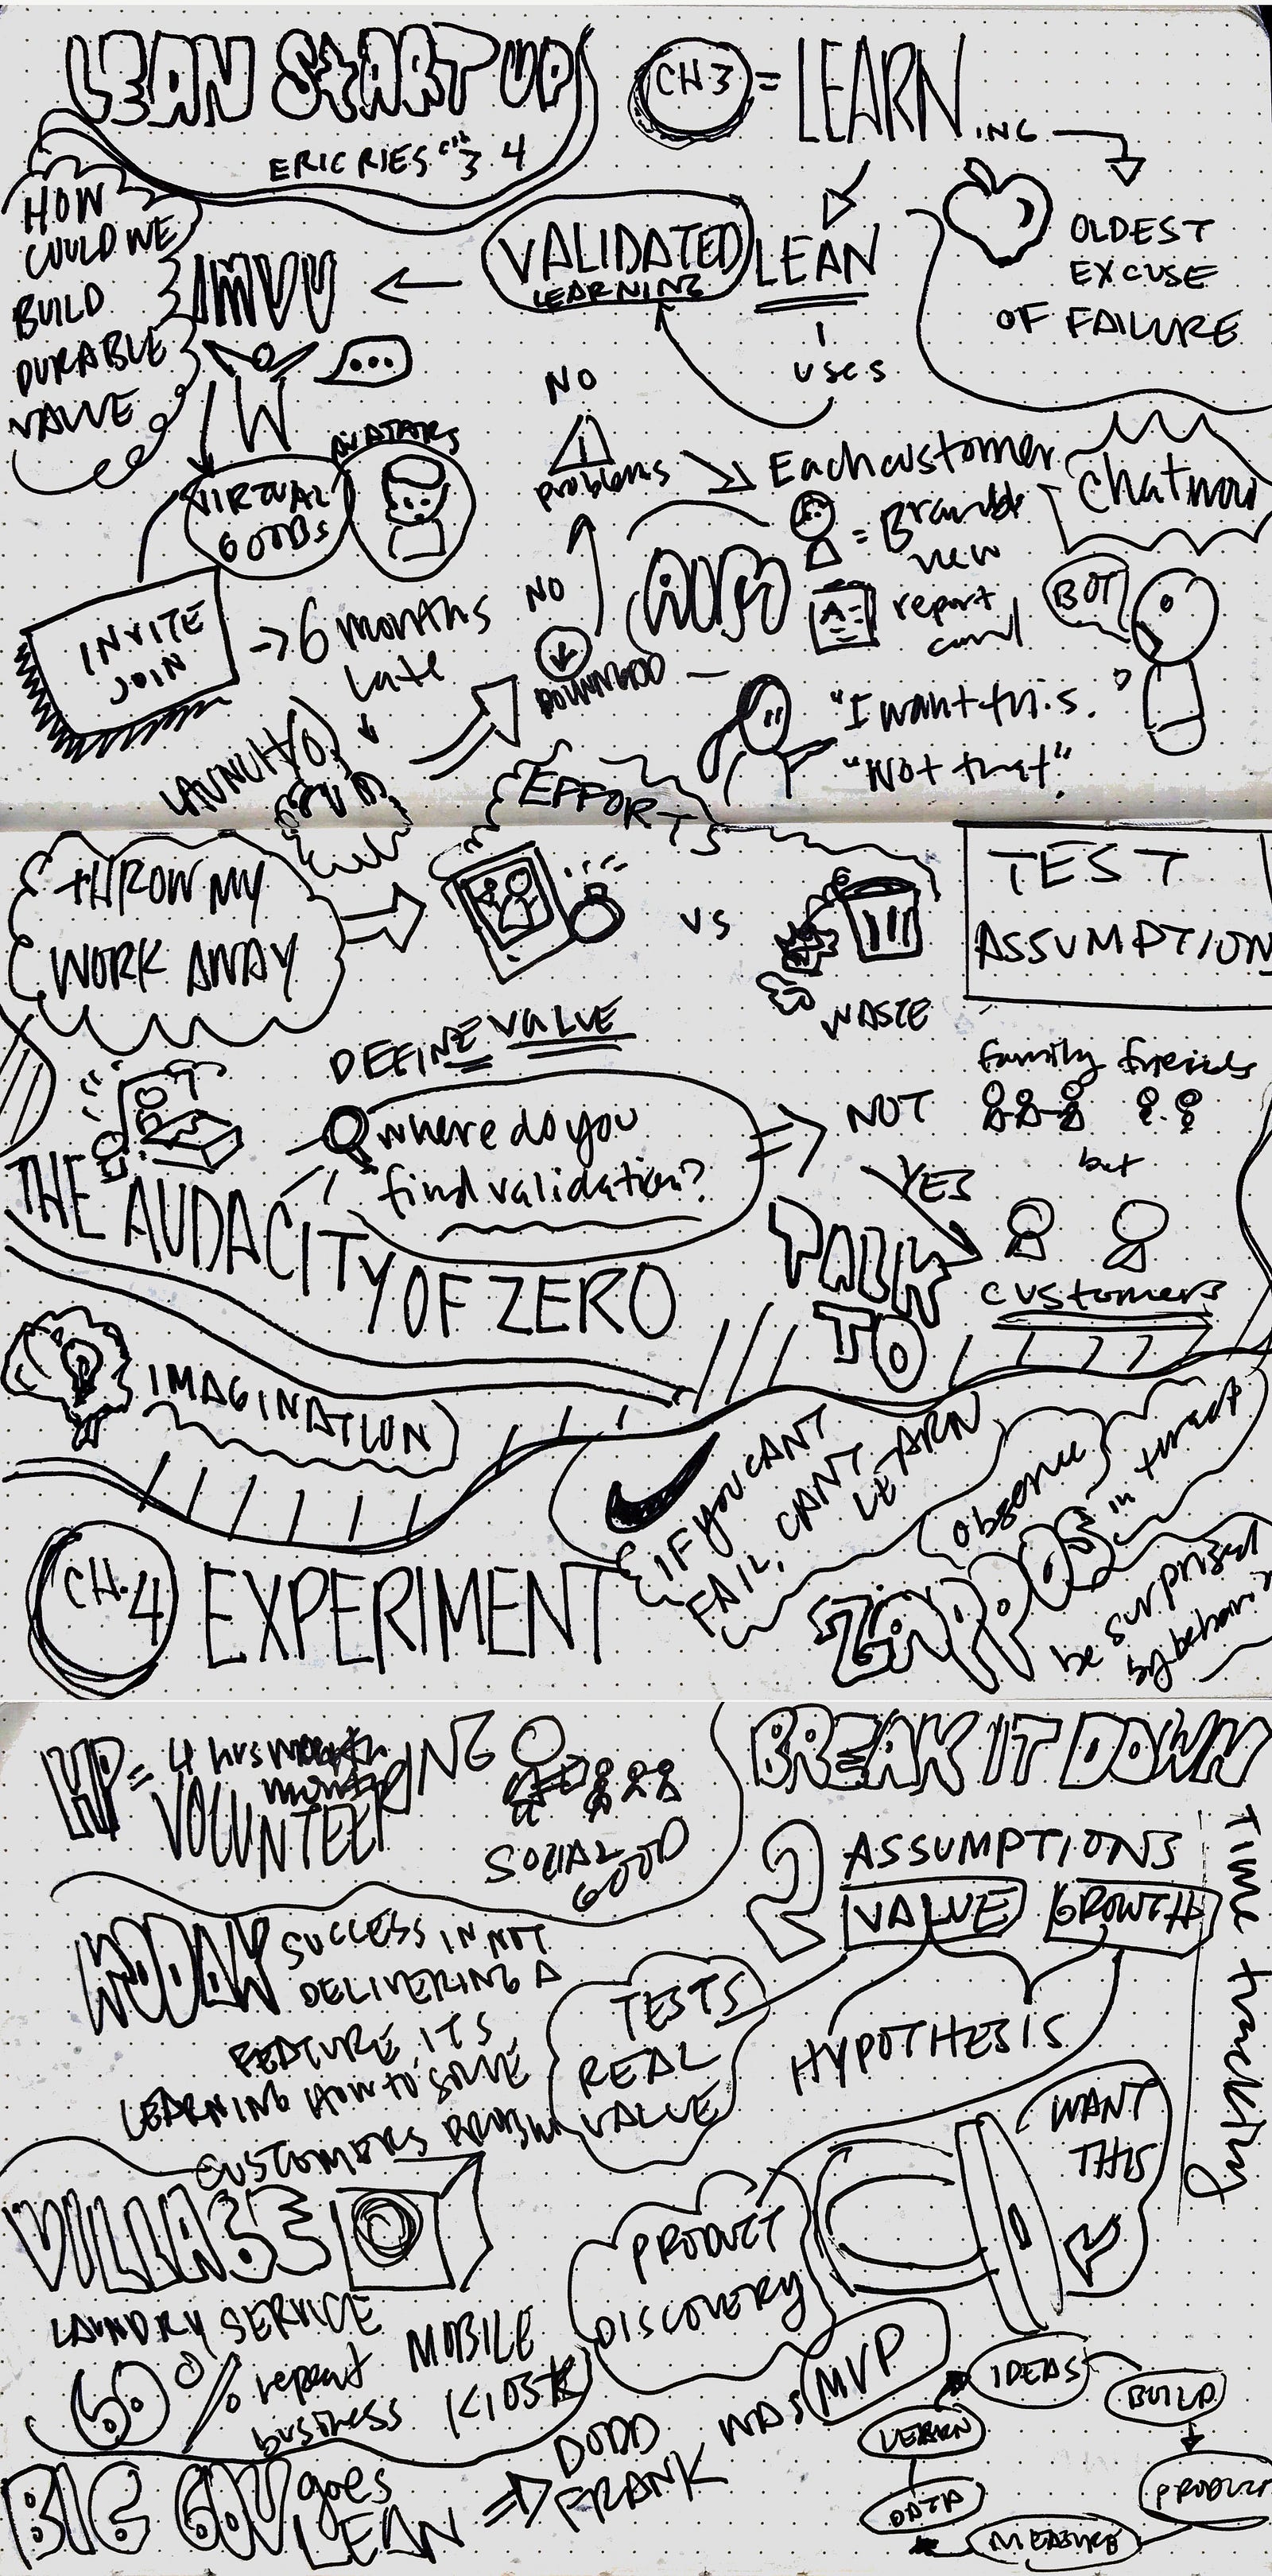 LEAN STARTUP
ERIC RIES CH 3 4
CH 3 = LEARN.ING
OLDEST
EXCUSE
OF FAILURE
LEAN
USES
VALIDATED
LEARNING
IMVU
HOW
COULD WE
BUILD
DURABLE
VALUE
...
AVATARS
VIRTUAL
GOODS
INVITE
JOIN
6 months
late
NO
DOWNLOAD
NO
problems
Each customer
= Brand
new
A
report
card
Chat now
BOT
"I want this."
"Not that".
EFFORTS
THROW MY
WORK AWAY
VS
WASTE
TEST
ASSUMPTION
DEFINE VALUE
where do you
find validation?
NOT
family friends
but
YES
TALK
TO
customers
THE AUDACITY OF ZERO
IMAGINATION
CH. 4
EXPERIMENT
IF YOU CANT
FAIL, CANT
LEARN
observe
ZAPPOS
in
be surprised
by behavi
HP = 4 hrs
month
VOLUNTEERING
SOCIAL
GOOD
KODAK
SUCCESS IN NOT
DELIVERING A
FEATURE ITS
LEARNING HOW TO SOLVE
CUSTOMERS PROBLM
BREAK IT DOWN
2 ASSUMPTIONS
VALUE GROWTH
HYPOTHESIS
TESTS
REAL
VALUE
WANT
THIS
TIME
PRODUCT
DISCOVERY
VILLAGE
LAUNDRY SERVICE
60% repeat
business
MOBILE
KIOSK
BIG GOV goes
LEAN
DODD
FRANK
WAS
MVP
IDEAS
BUILD
PRODUCT
MEASURE
DATA
LEARN